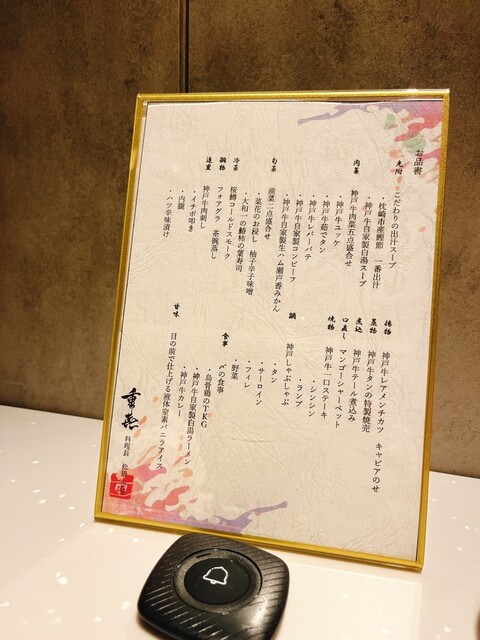 お品書
先附
こだわりの出汁スープ
・枕崎市産鰹節 一番出汁
・神戸牛自家製白湯スープ
肉菜
神戸牛肉菜五点盛合せ
・神戸牛ユッケ
・神戸牛茹でタン
・神戸牛レバーパテ
・神戸牛自家製コンビーフ
・神戸牛自家製生ハム瀬戸香みかん
旬菜
前菜二点盛合せ
・菜花のお浸し 柚子辛子味噌
・大和一の鯖柿の葉寿司
冷菜
桜鱒コールドスモーク
鍋物
フォアグラ 茶碗蒸し
造里
神戸牛肉刺し
・イチボ叩き
・内腿
・ハツ辛味漬け
揚物
神戸牛レアメンチカツ キャビアのせ
蒸物
神戸牛タンの特製焼売
煮込
神戸牛テール煮込み
口直し
マンゴーシャーベット
焼物
神戸牛一口ステーキ
・シンシン
・ランプ
鍋
神戸しゃぶしゃぶ
・タン
・サーロイン
・フィレ
・野菜
食事
〆の食事
・烏骨鶏のTKG
・神戸牛自家製白湯ラーメン
・神戸牛カレー
甘味
目の前で仕上げる液体窒素バニラアイス
料理長